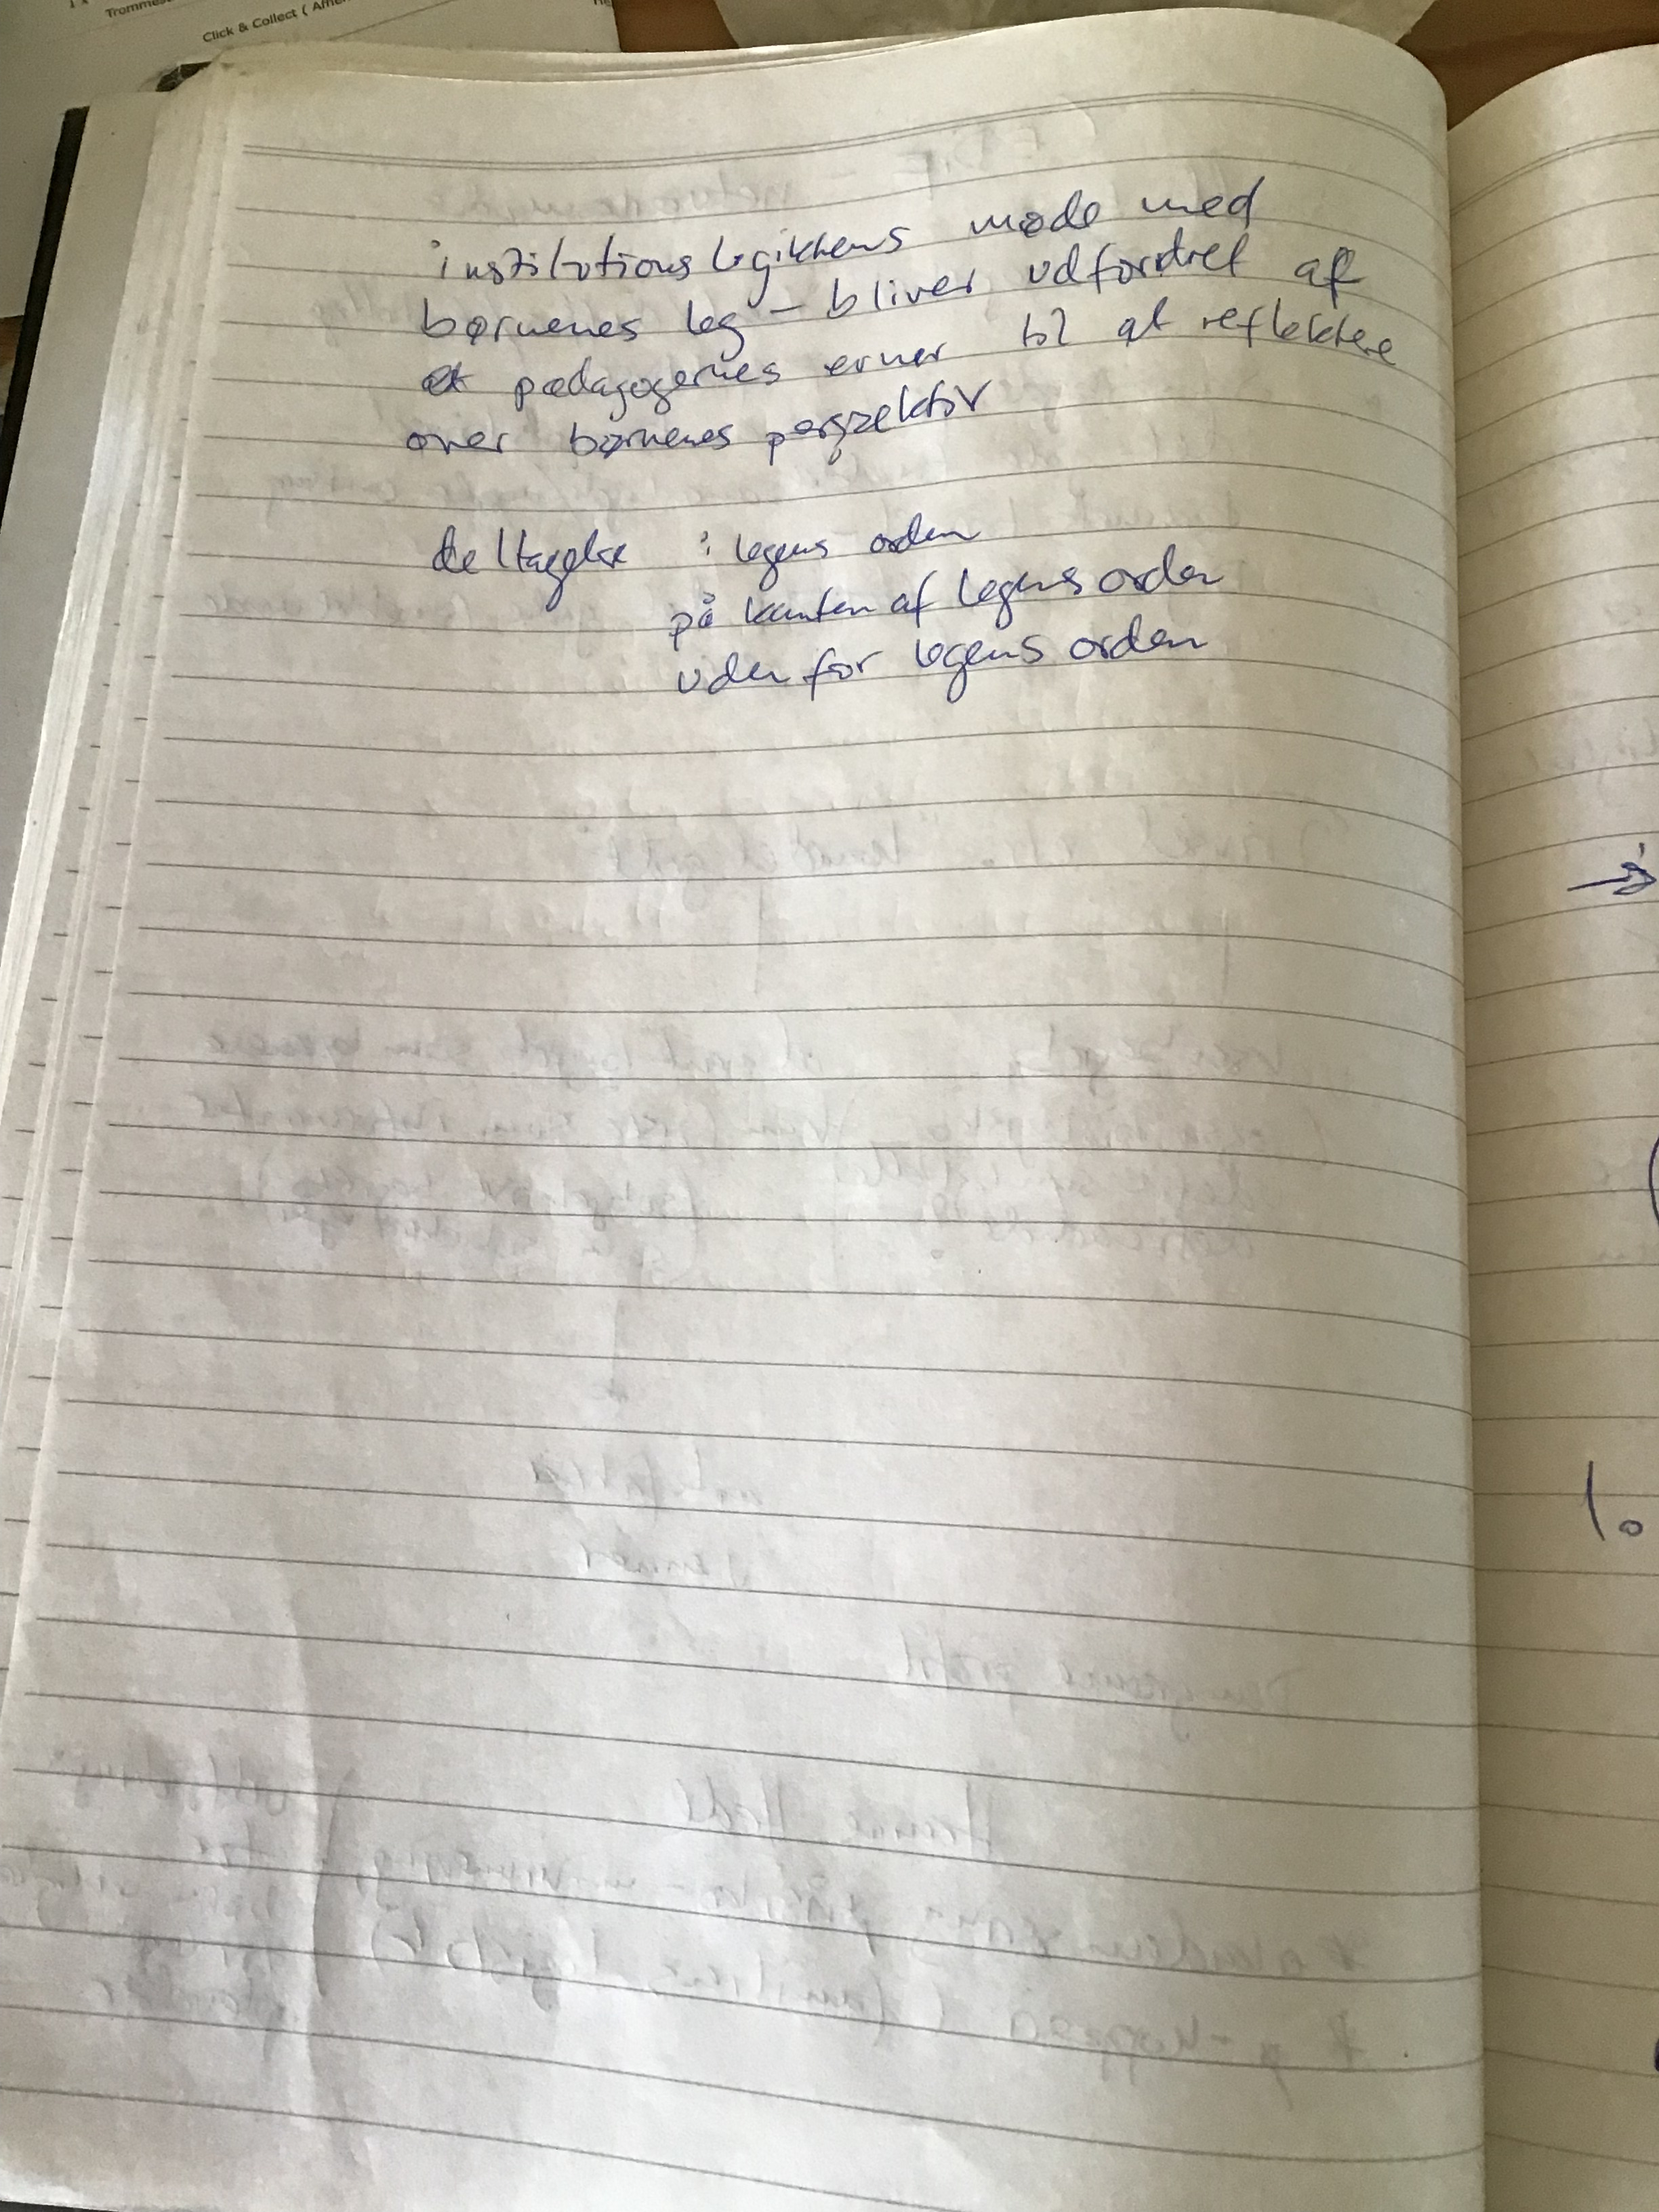 Tromme
Click & Collect ( Affe
institutionslogikkens møde med
børnenes leg - bliver udfordret af
at pædagogernes evner til at reflektere
over børnenes perspektiv
deltagelse i legens orden
på kanten af legens orden
uden for legens orden